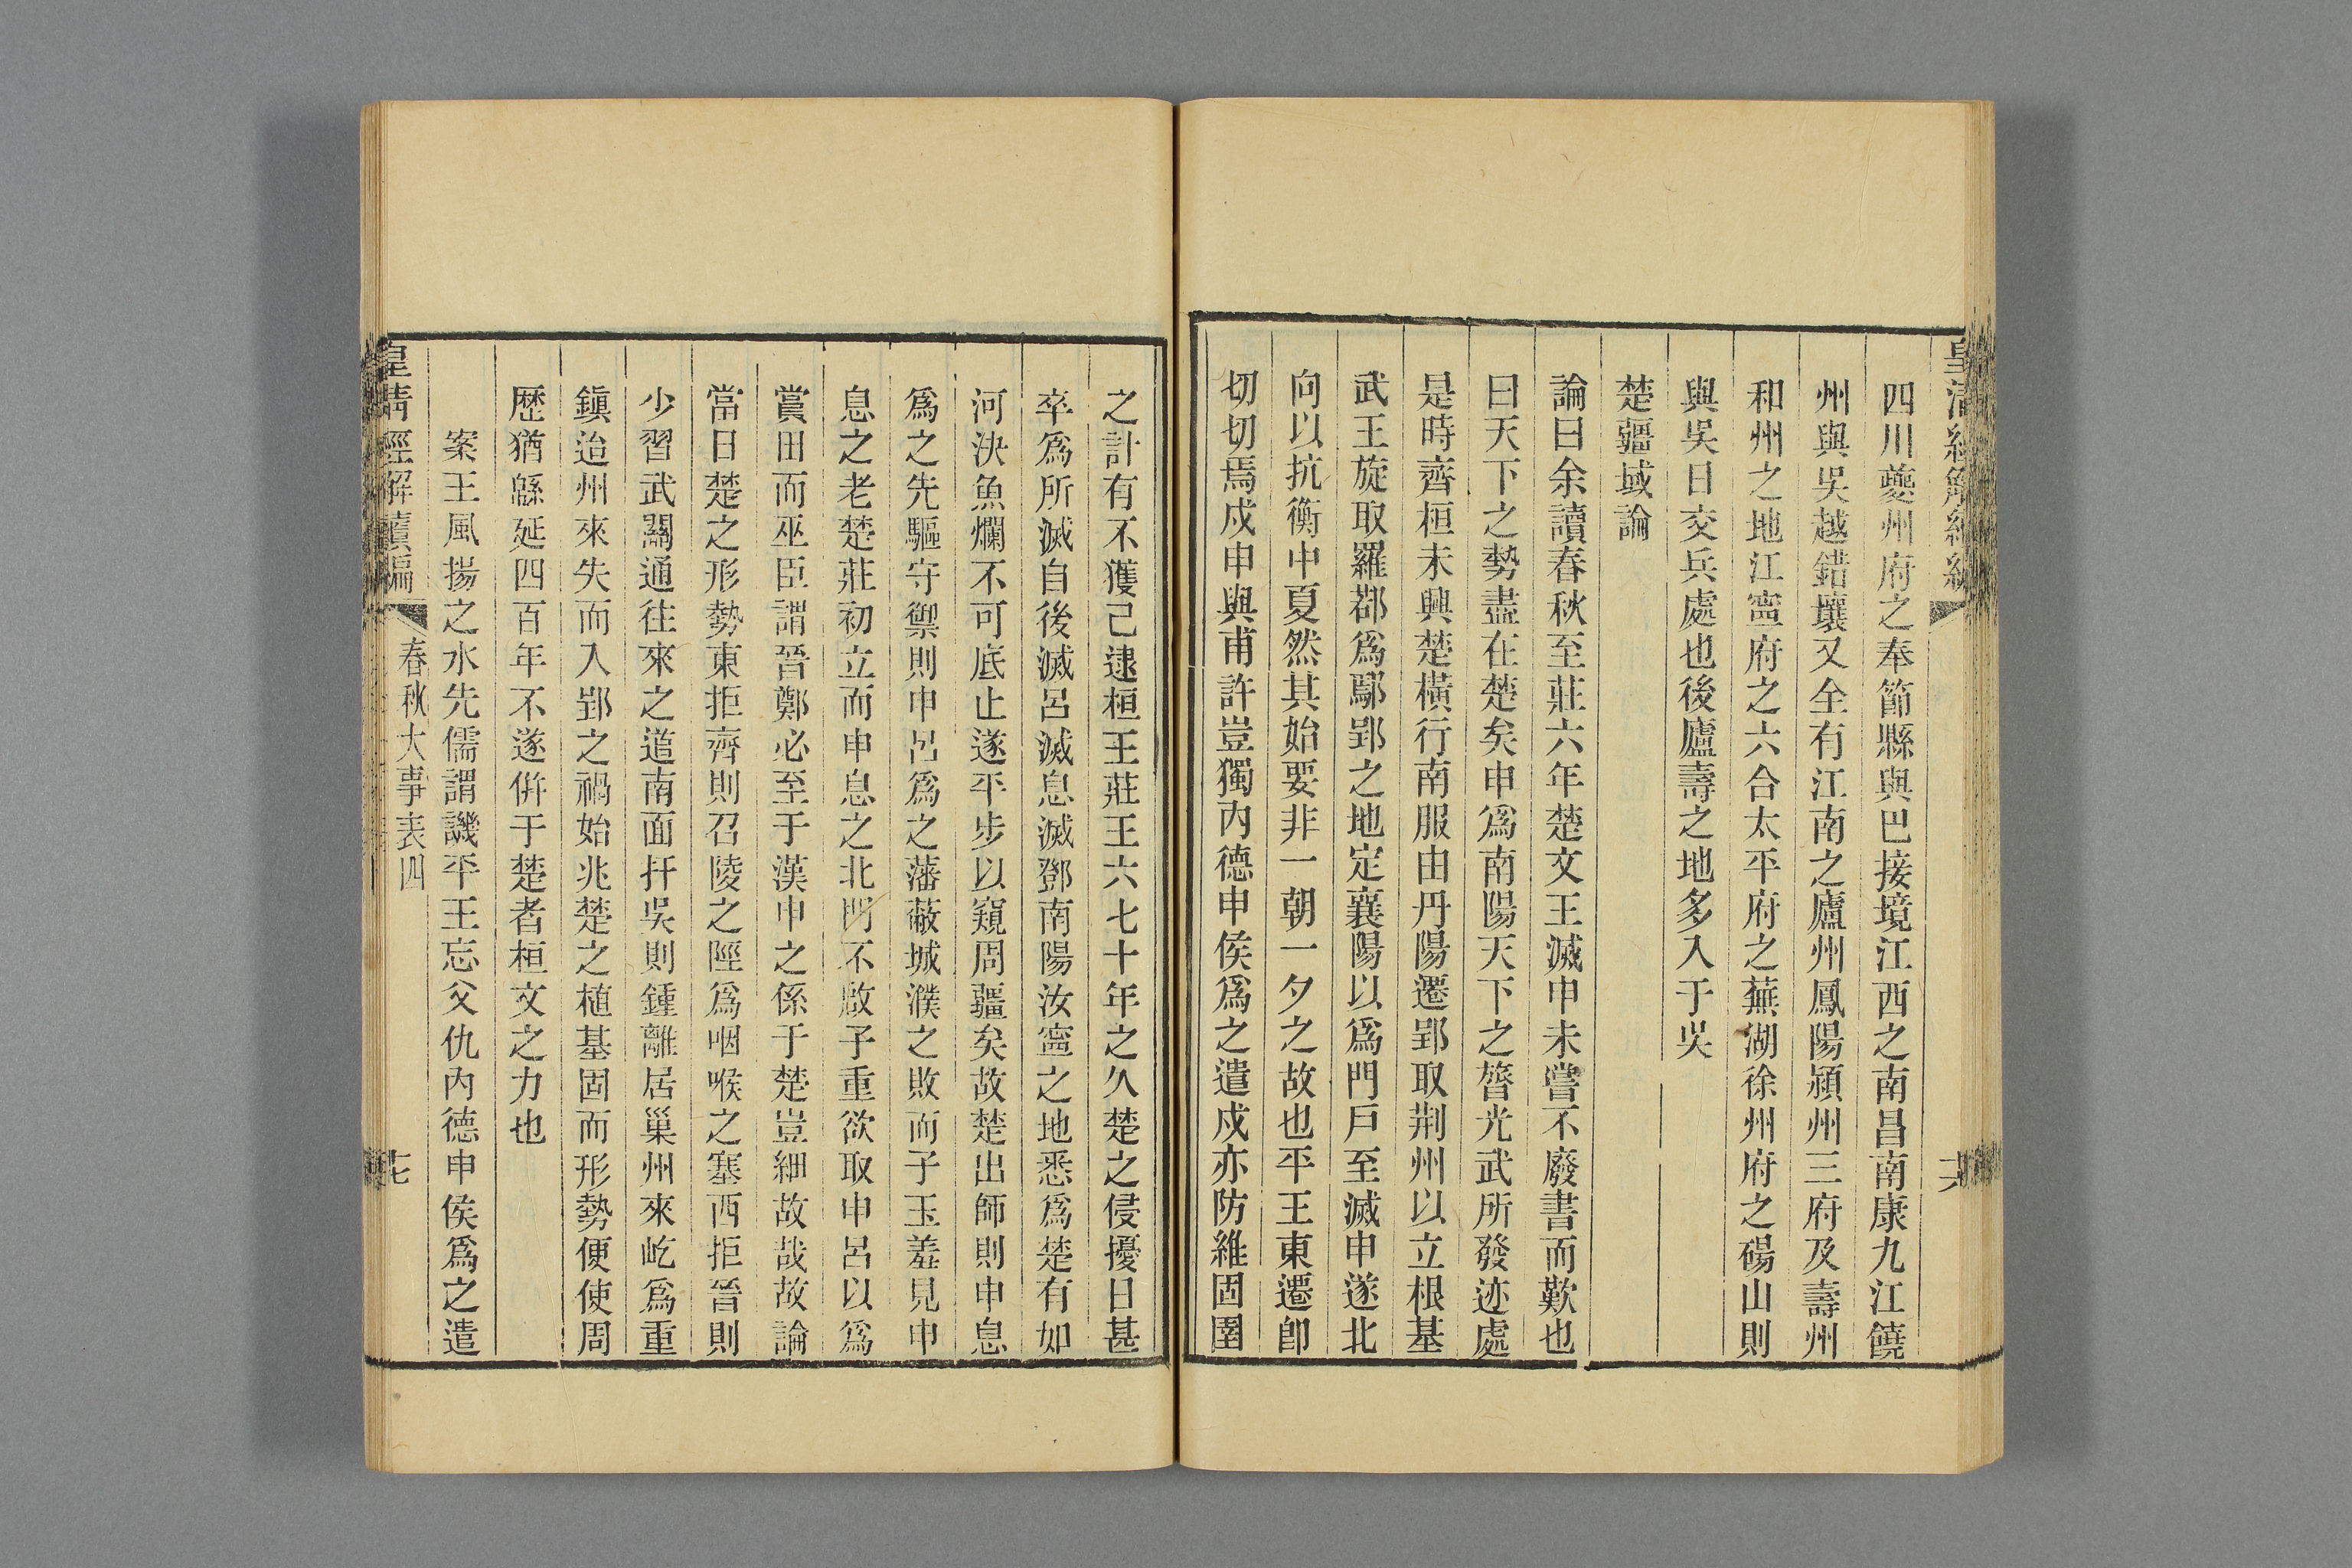 四川夔州府之奉節縣與巴接境江西之南昌南康九江饒
州與吳越錯壤又全有江南之廬州鳳陽潁州三府及壽州
和州之地江寧府之六合太平府之蕪湖徐州府之碭山則
與吳日交兵處也後廬壽之地多入于吳
楚疆域論
論曰余讀春秋至莊六年楚文王滅申未嘗不廢書而歎也
曰天下之勢盡在楚矣申為南陽天下之膂光武所發迹處
是時齊桓未興楚橫行南服由丹陽遷郢取荆州以立根基
武王旋取羅鄀為鄢郢之地定襄陽以為門戶至滅申遂北
向以抗衡中夏然其始要非一朝一夕之故也平王東遷卽
切切焉戍申與甫許豈獨內德申侯為之遣戍亦防維固圉
之計有不獲己逮桓王莊王六七十年之久楚之侵擾日甚
卒為所滅自後滅呂滅息滅鄧南陽汝寧之地悉為楚有如
河決魚爛不可底止遂平步以窺周疆矣故楚出師則申息
為之先驅守禦則申呂為之藩蔽城濮之敗而子玉羞見申
息之老楚莊初立而申息之北門不啟子重欲取申呂以為
賞田而巫臣謂晉鄭必至于漢申之係于楚豈細故哉故論
當日楚之形勢東拒齊則召陵之陘為咽喉之塞西拒晉則
少習武關通往來之道南面扞吳則鍾離居巢州來屹為重
鎭迨州來失而入郢之禍始兆楚之植基固而形勢便使周
歷猶緜延四百年不遂併于楚者桓文之力也
案王風揚之水先儒謂譏平王忘父仇內德申侯為之遣
皇清經解續編
春秋大事表四
十七